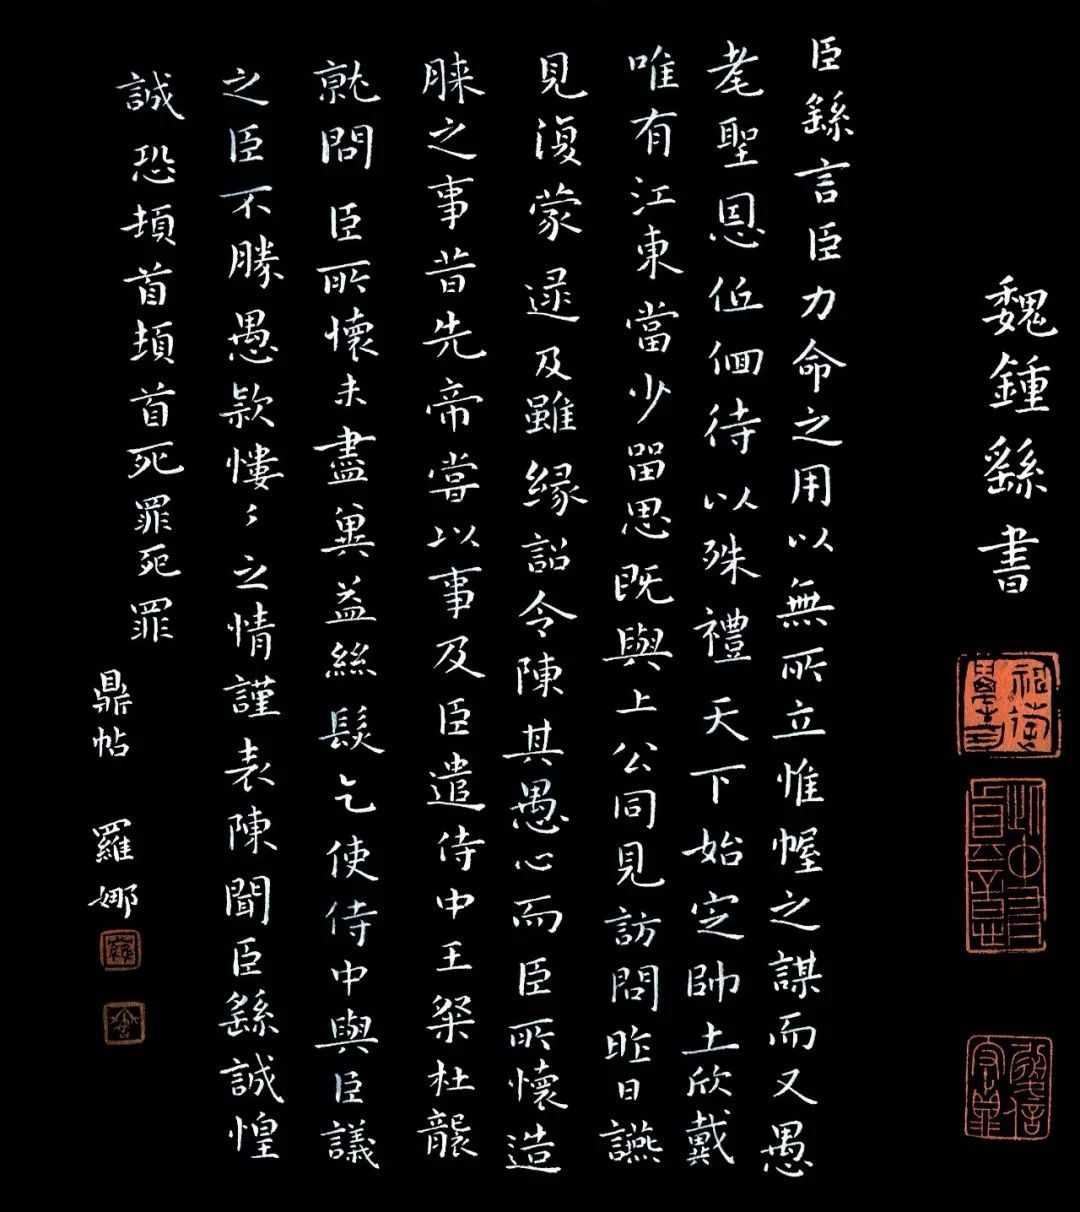 魏鍾繇書
臣繇言臣力命之用以無所立惟幄之謀而又愚
耄聖恩低佪待以殊禮天下始定帥土欣戴
唯有江東當少留思既與上公同見訪問昨日讌
見復蒙逮及雖緣詔令陳其愚心而臣所懷造
膝之事昔先帝嘗以事及臣遣侍中王粲杜襲
就問臣所懷未盡冀益絲髮乞使侍中與臣議
之臣不勝愚款慺〻之情謹表陳聞臣繇誠惶
誠恐頓首頓首死罪死罪
鼎帖 羅娜